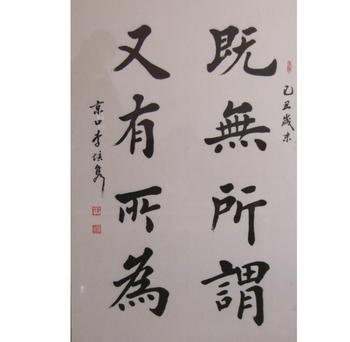 己丑歲末
既無所謂
又有所為
京口李